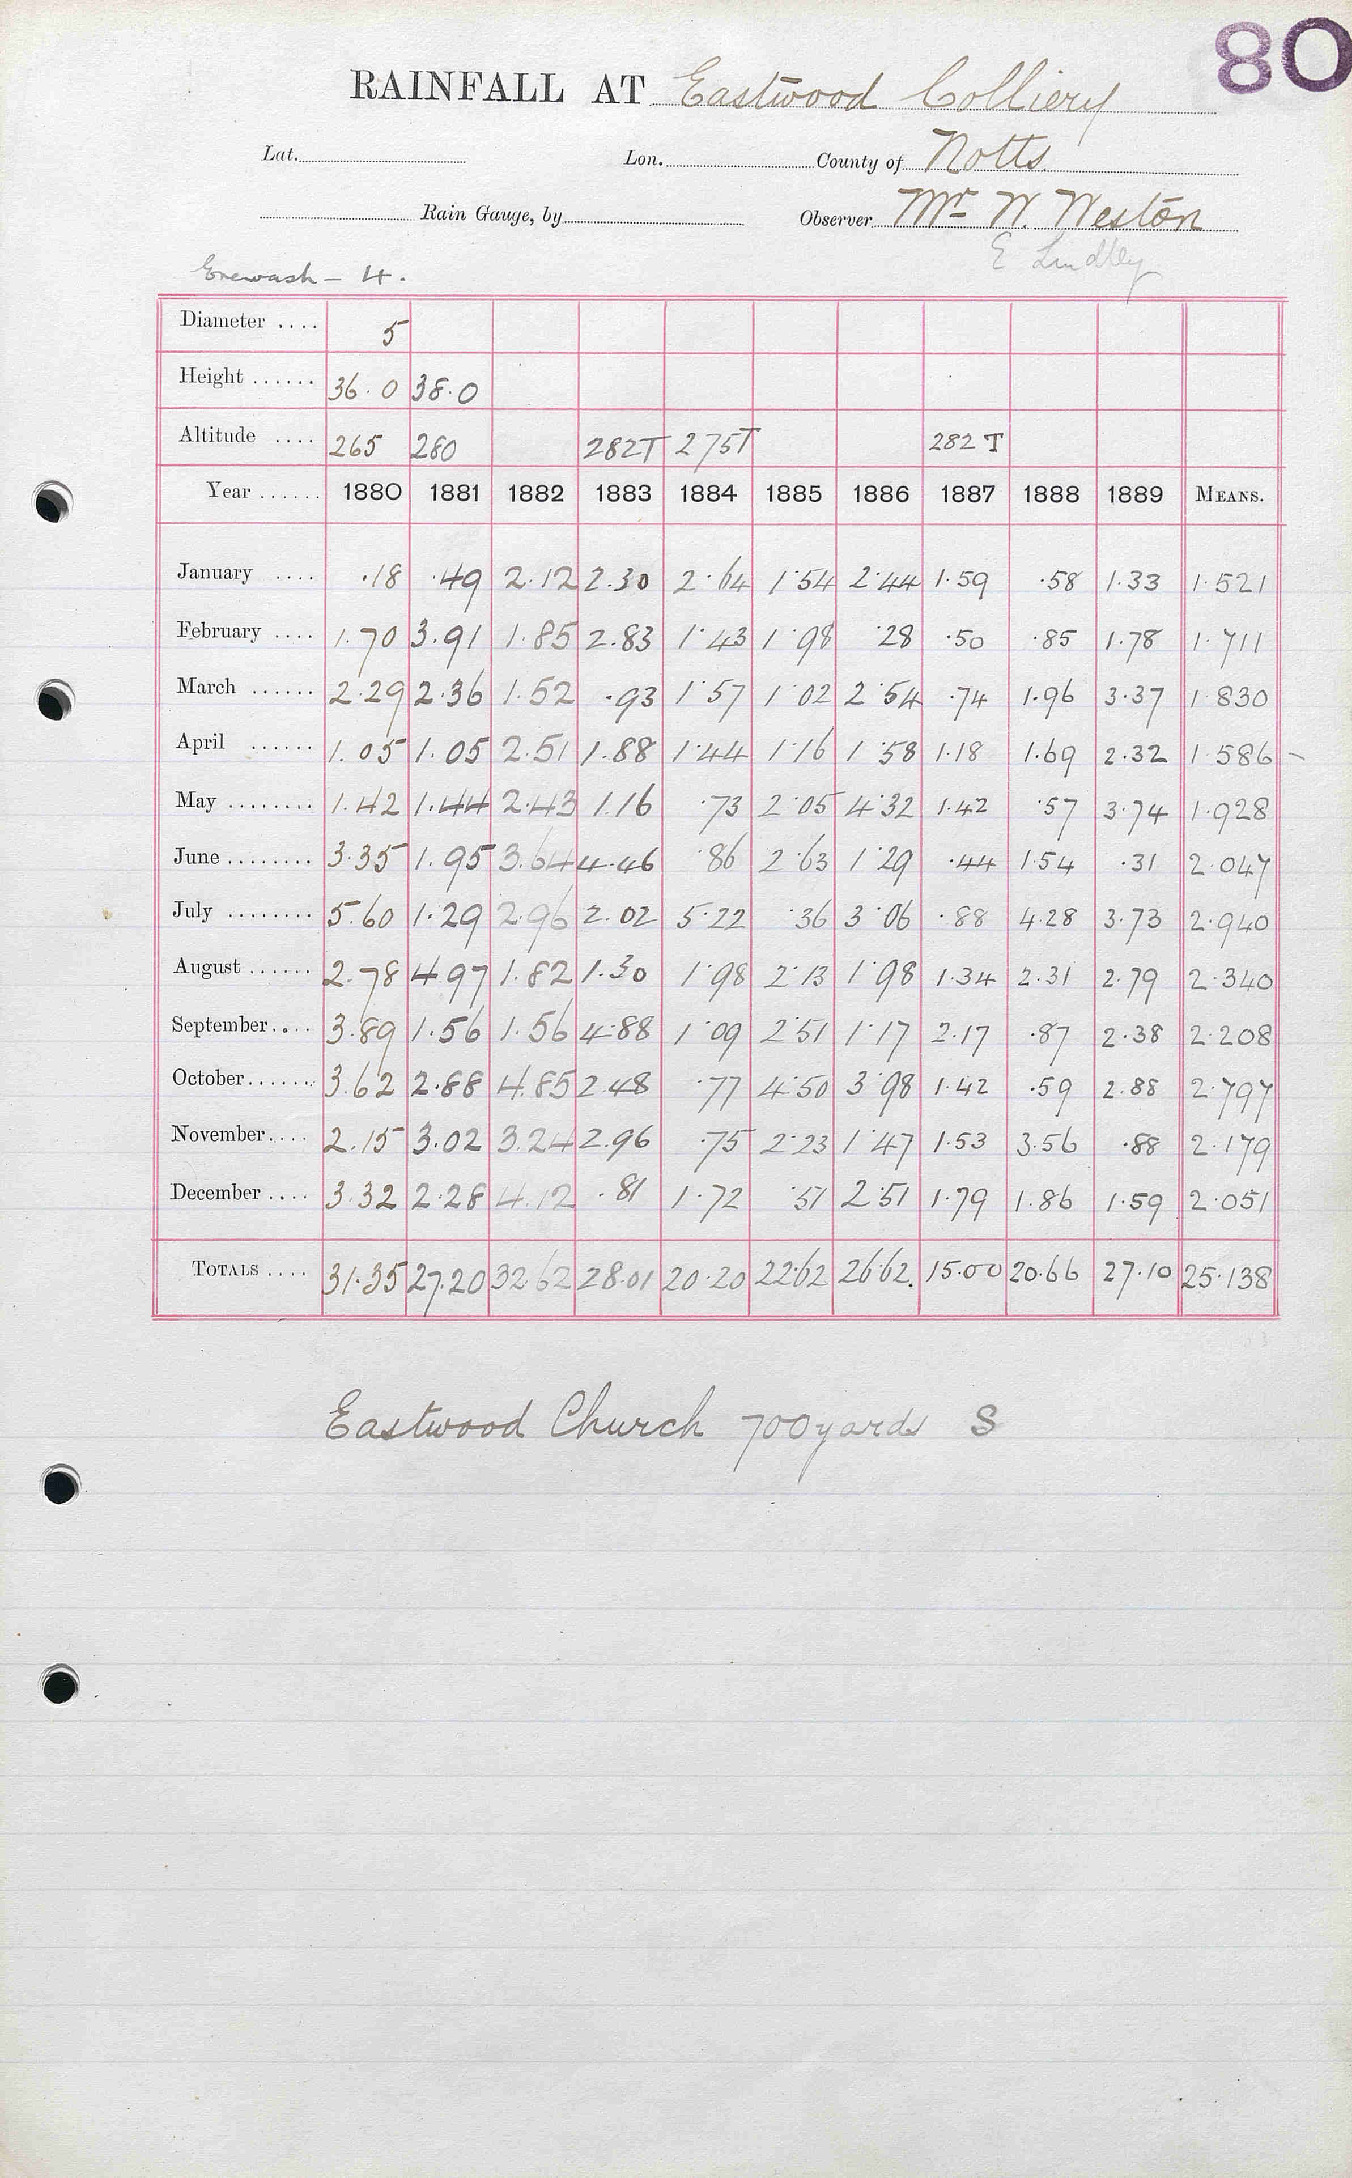 80
RAINFALL AT Eastwood Colliery
Lat. Lon. County of Notts
Rain Gauge, by Observer Mr W. Weston
E Lindley
Erewash - 4.
Diameter .... 5
Height ...... 36.0 38.0
Altitude .... 265 280 282T 275T 282 T
Year ...... 1880 1881 1882 1883 1884 1885 1886 1887 1888 1889 MEANS.
January .... .18 .49 2.12 2.30 2.64 1.54 2.44 1.59 .58 1.33 1.521
February .... 1.70 3.91 1.85 2.83 1.43 1.98 .28 .50 .85 1.78 1.711
March ...... 2.29 2.36 1.52 .93 1.57 1.02 2.54 .74 1.96 3.37 1.830
April ...... 1.05 1.05 2.51 1.88 1.44 1.16 1.58 1.18 1.69 2.32 1.586 -
May ........ 1.42 1.44 2.43 1.16 .73 2.05 4.32 1.42 .57 3.74 1.928
June ........ 3.35 1.95 3.64 4.46 .86 2.63 1.29 .44 1.54 .31 2.047
July ........ 5.60 1.29 2.96 2.02 5.22 .36 3.06 .88 4.28 3.73 2.940
August ...... 2.78 4.97 1.82 1.30 1.98 2.13 1.98 1.34 2.31 2.79 2.340
September.... 3.89 1.56 1.56 4.88 1.09 2.51 1.17 2.17 .87 2.38 2.208
October...... 3.62 2.88 4.85 2.48 .77 4.50 3.98 1.42 .59 2.88 2.797
November.... 2.15 3.02 3.24 2.96 .75 2.23 1.47 1.53 3.56 .88 2.179
December .... 3.32 2.28 4.12 .81 1.72 .51 2.51 1.79 1.86 1.59 2.051
TOTALS .... 31.35 27.20 32.62 28.01 20.20 22.62 26.62. 15.00 20.66 27.10 25.138
Eastwood Church 700 yards S